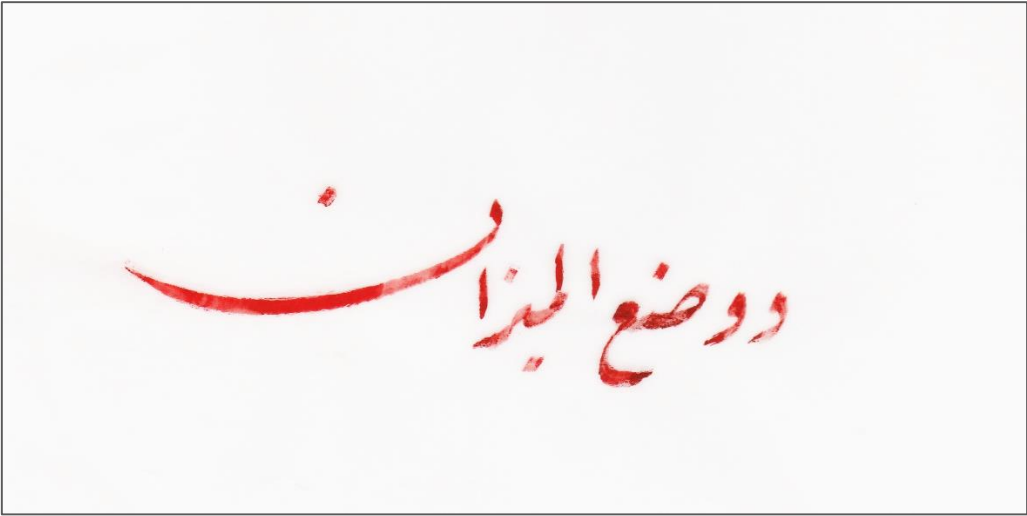 ووضع الميزان